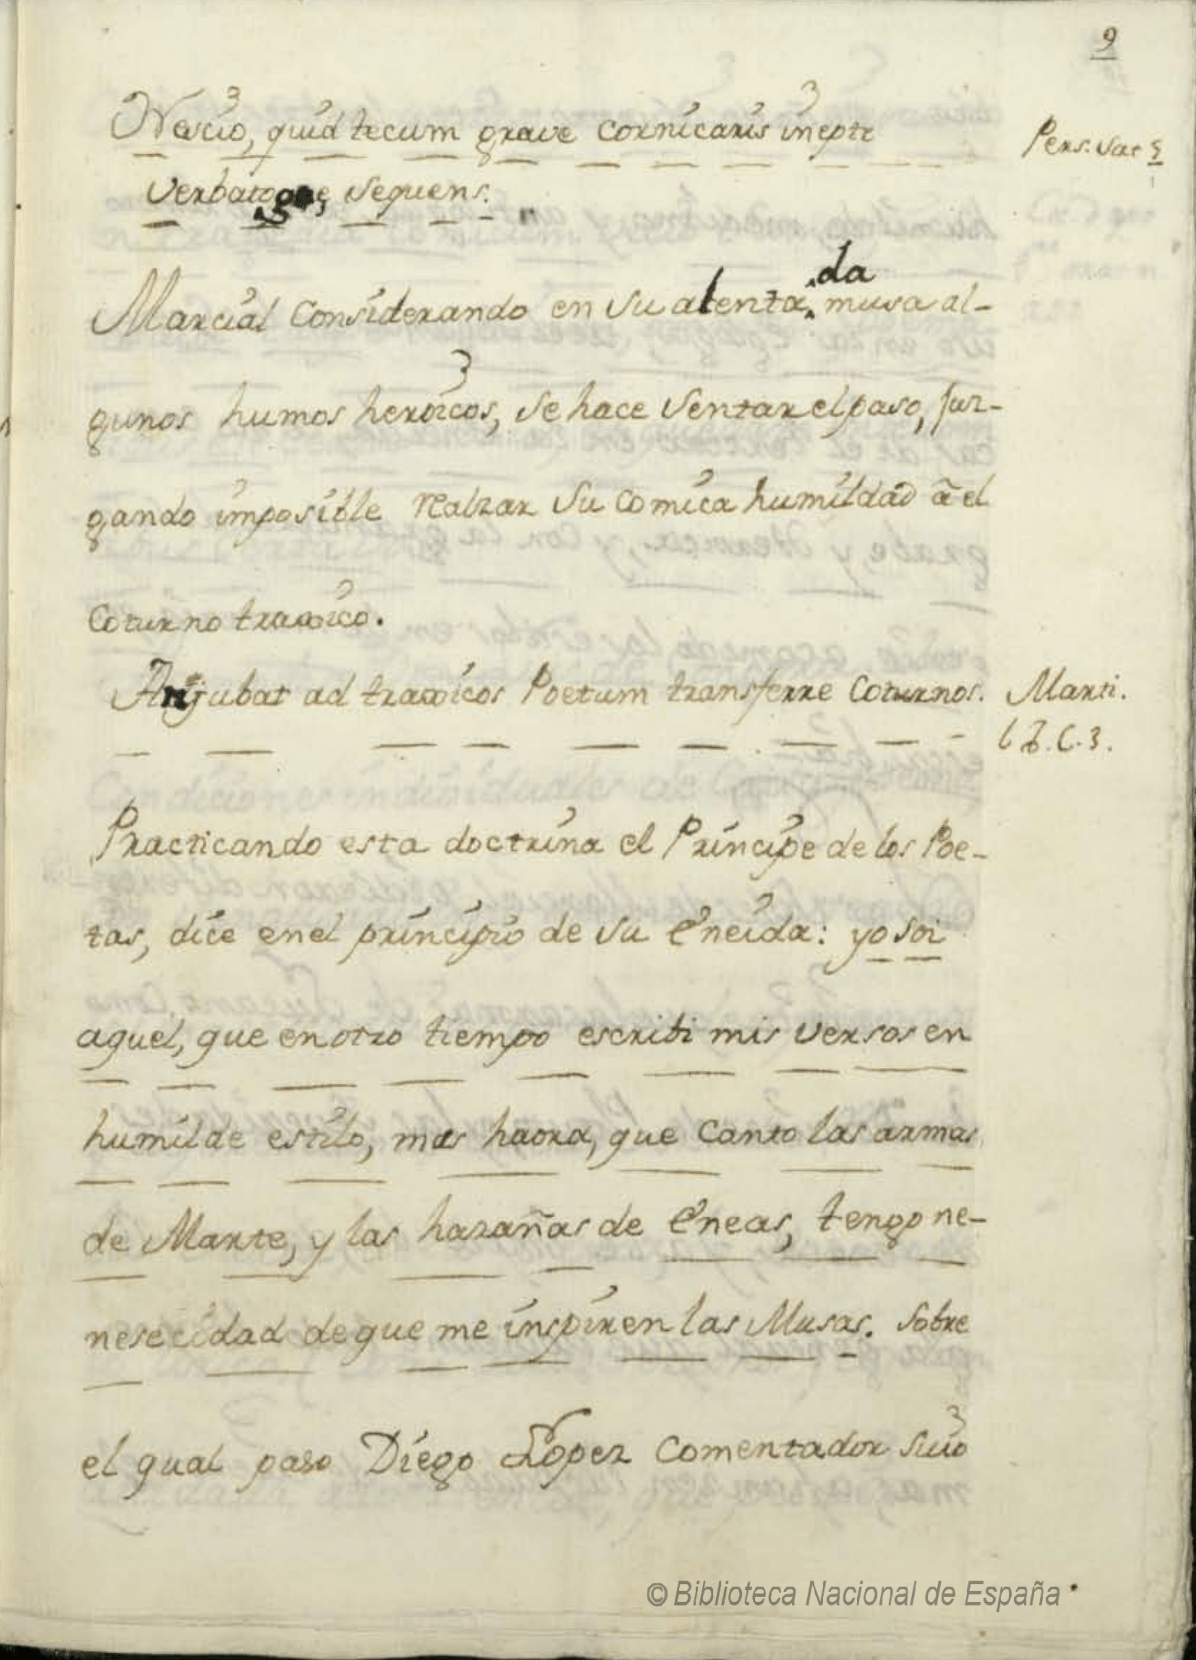 9
Nescio, quid tecum grave cornicaris inepte
Pers. Sat 5
Verba sequens.
Marcial considerando en su alentada musa al-
gunos humos heroicos, se hace sentar el paso, juz-
gando imposible realzar su comica humildad â el
coturno tragico.
An jubat ad tragicos Poetum transferre coturnos.
Marti.
l 8. C. 3.
Practicando esta doctrina el Principe de los Poe-
tas, dice en el principio de su Eneida: yo soi
aquel, que en otro tiempo escribi mis versos en
humilde estilo, mas haora, que canto las armas
de Marte, y las hazañas de Eneas, tengo ne-
nesecidad de que me inspiren las Musas. Sobre
el qual paso Diego Lopez comentador suio
© Biblioteca Nacional de España